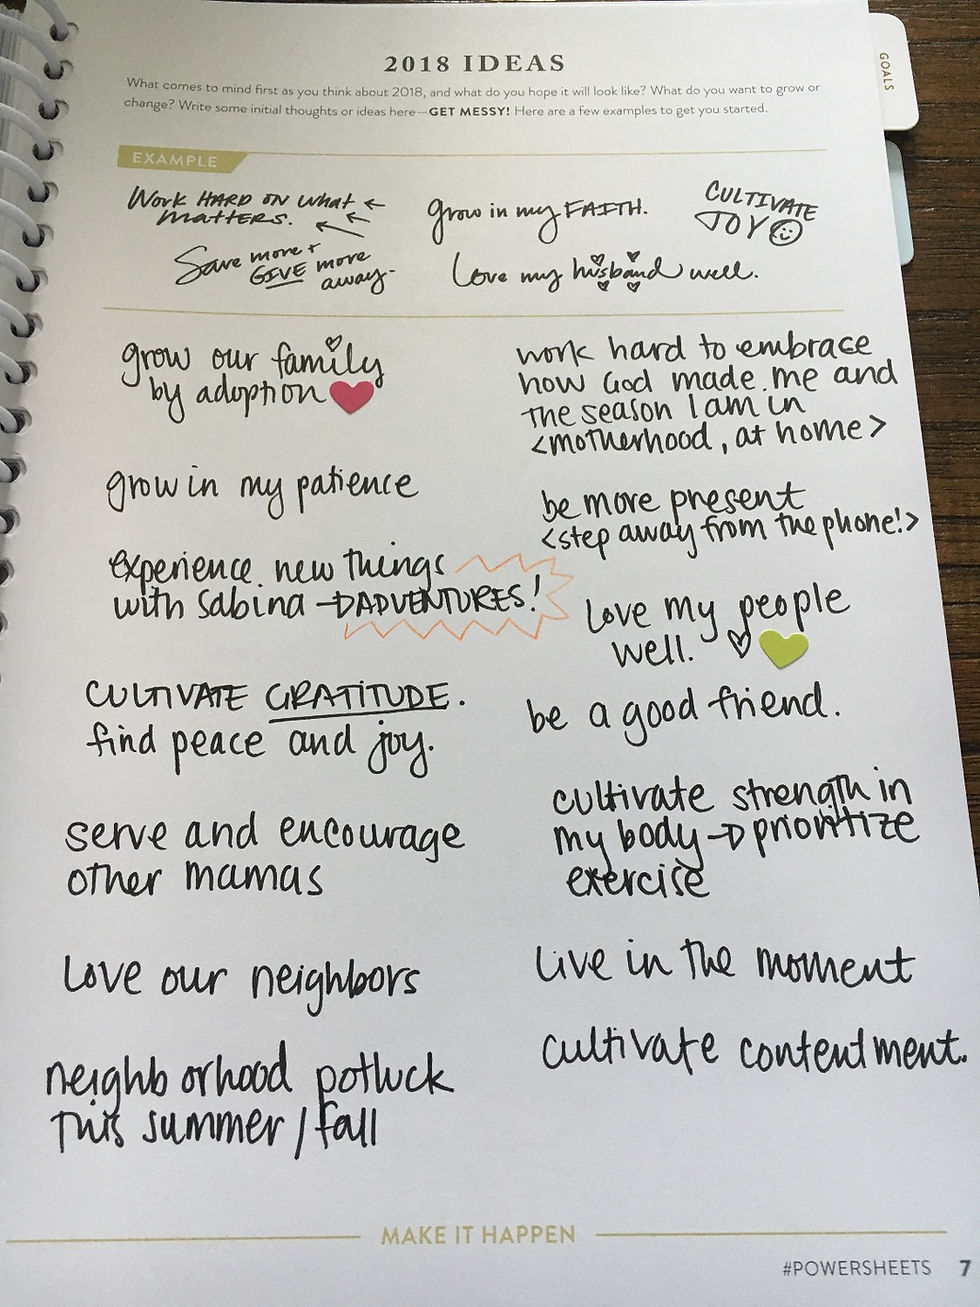 GOALS
2018 IDEAS
What comes to mind first as you think about 2018, and what do you hope it will look like? What do you want to grow or
change? Write some initial thoughts or ideas here—GET MESSY! Here are a few examples to get you started.
EXAMPLE
Work HARD ON what
matters.
Save more +
GIVE more
away.
grow in my FAITH.
Love my husband well.
CULTIVATE
JOY
grow our family
by adoption
grow in my patience
experience new things
with Sabina → ADVENTURES!
CULTIVATE GRATITUDE.
find peace and joy.
serve and encourage
other mamas
Love our neighbors
neighborhood potluck
this summer/fall
work hard to embrace
how God made me and
the season I am in
<motherhood, at home>
be more present
<step away from the phone!>
Love my people
well.
be a good friend.
cultivate strength in
my body → prioritize
exercise
Live in the moment
cultivate contentment.
MAKE IT HAPPEN
#POWERSHEETS 7